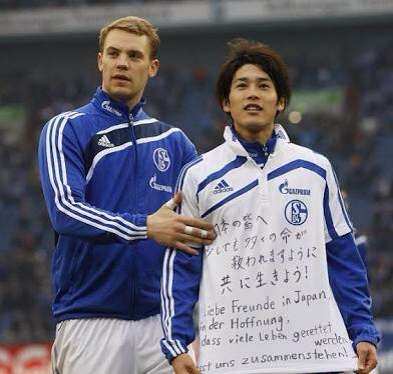 adidas
GAZPROM
adidas
GAZPROM
日本の皆へ
少しでも多くの命が
救われますように
共に生きよう!
Liebe Freunde in Japan,
in der Hoffnung,
dass viele Leben gerettet
werden
uns zusammenstehen!